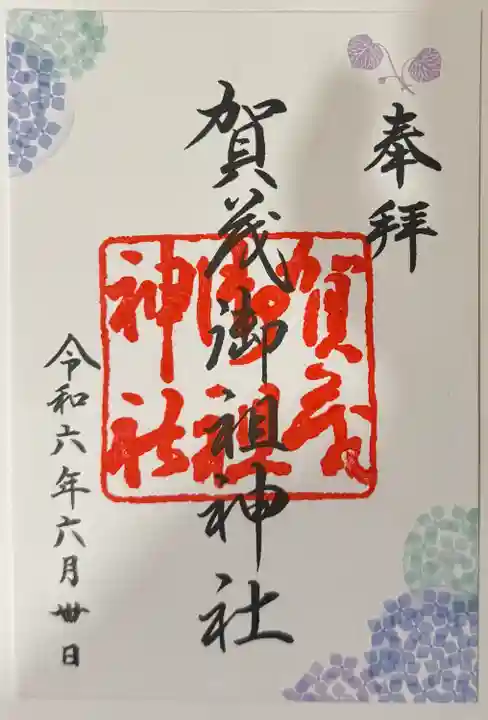 奉拝
賀茂御祖神社
賀茂
御祖
神社
令和六年六月丗日